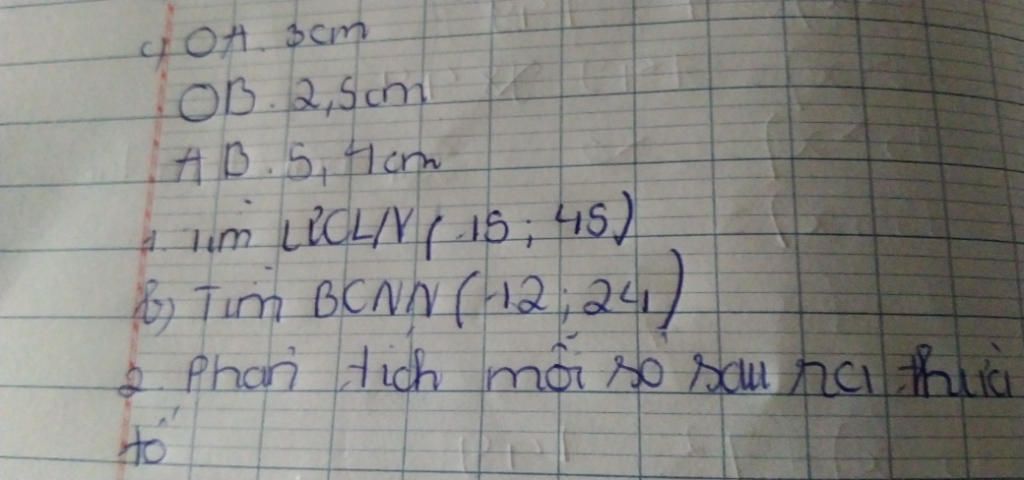 c) OA. 3cm
OB. 2,5cm
AB. 5,4cm
1. Tìm ƯCLN (15; 45)
b) Tìm BCNN (12; 24)
2. Phân tích mỗi số sau ra thừa
tố